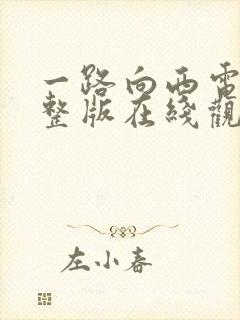 一路向西電
整版在綫觀
左小春